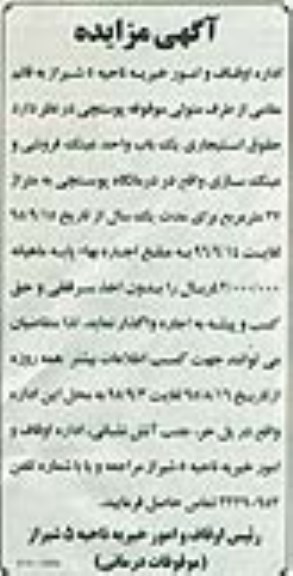 آگهی مزایده
اداره اوقاف و امور خیریه ناحیه ۵ شیراز به قائم
مقامی از طرف متولی موقوفه پوستچی در نظر دارد
حقوق استیجاری یک باب واحد عینک فروشی و
عینک سازی واقع در درمانگاه پوستچی به متراژ
۲۷ مترمربع برای مدت یک سال از تاریخ
لغایت به مبلغ اجاره بهاء پایه ماهیانه
ریال را بدون اخذ سرقفلی و حق
کسب و پیشه به اجاره واگذار نماید. لذا متقاضیان
می توانند جهت کسب اطلاعات بیشتر همه روزه
از تاریخ لغایت به محل این اداره
واقع در پل حر، جنب آتش نشانی، اداره اوقاف و
امور خیریه ناحیه ۵ شیراز مراجعه و یا با شماره تلفن
تماس حاصل فرمایند.
رئیس اوقاف و امور خیریه ناحیه ۵ شیراز
(موقوفات درمانی)